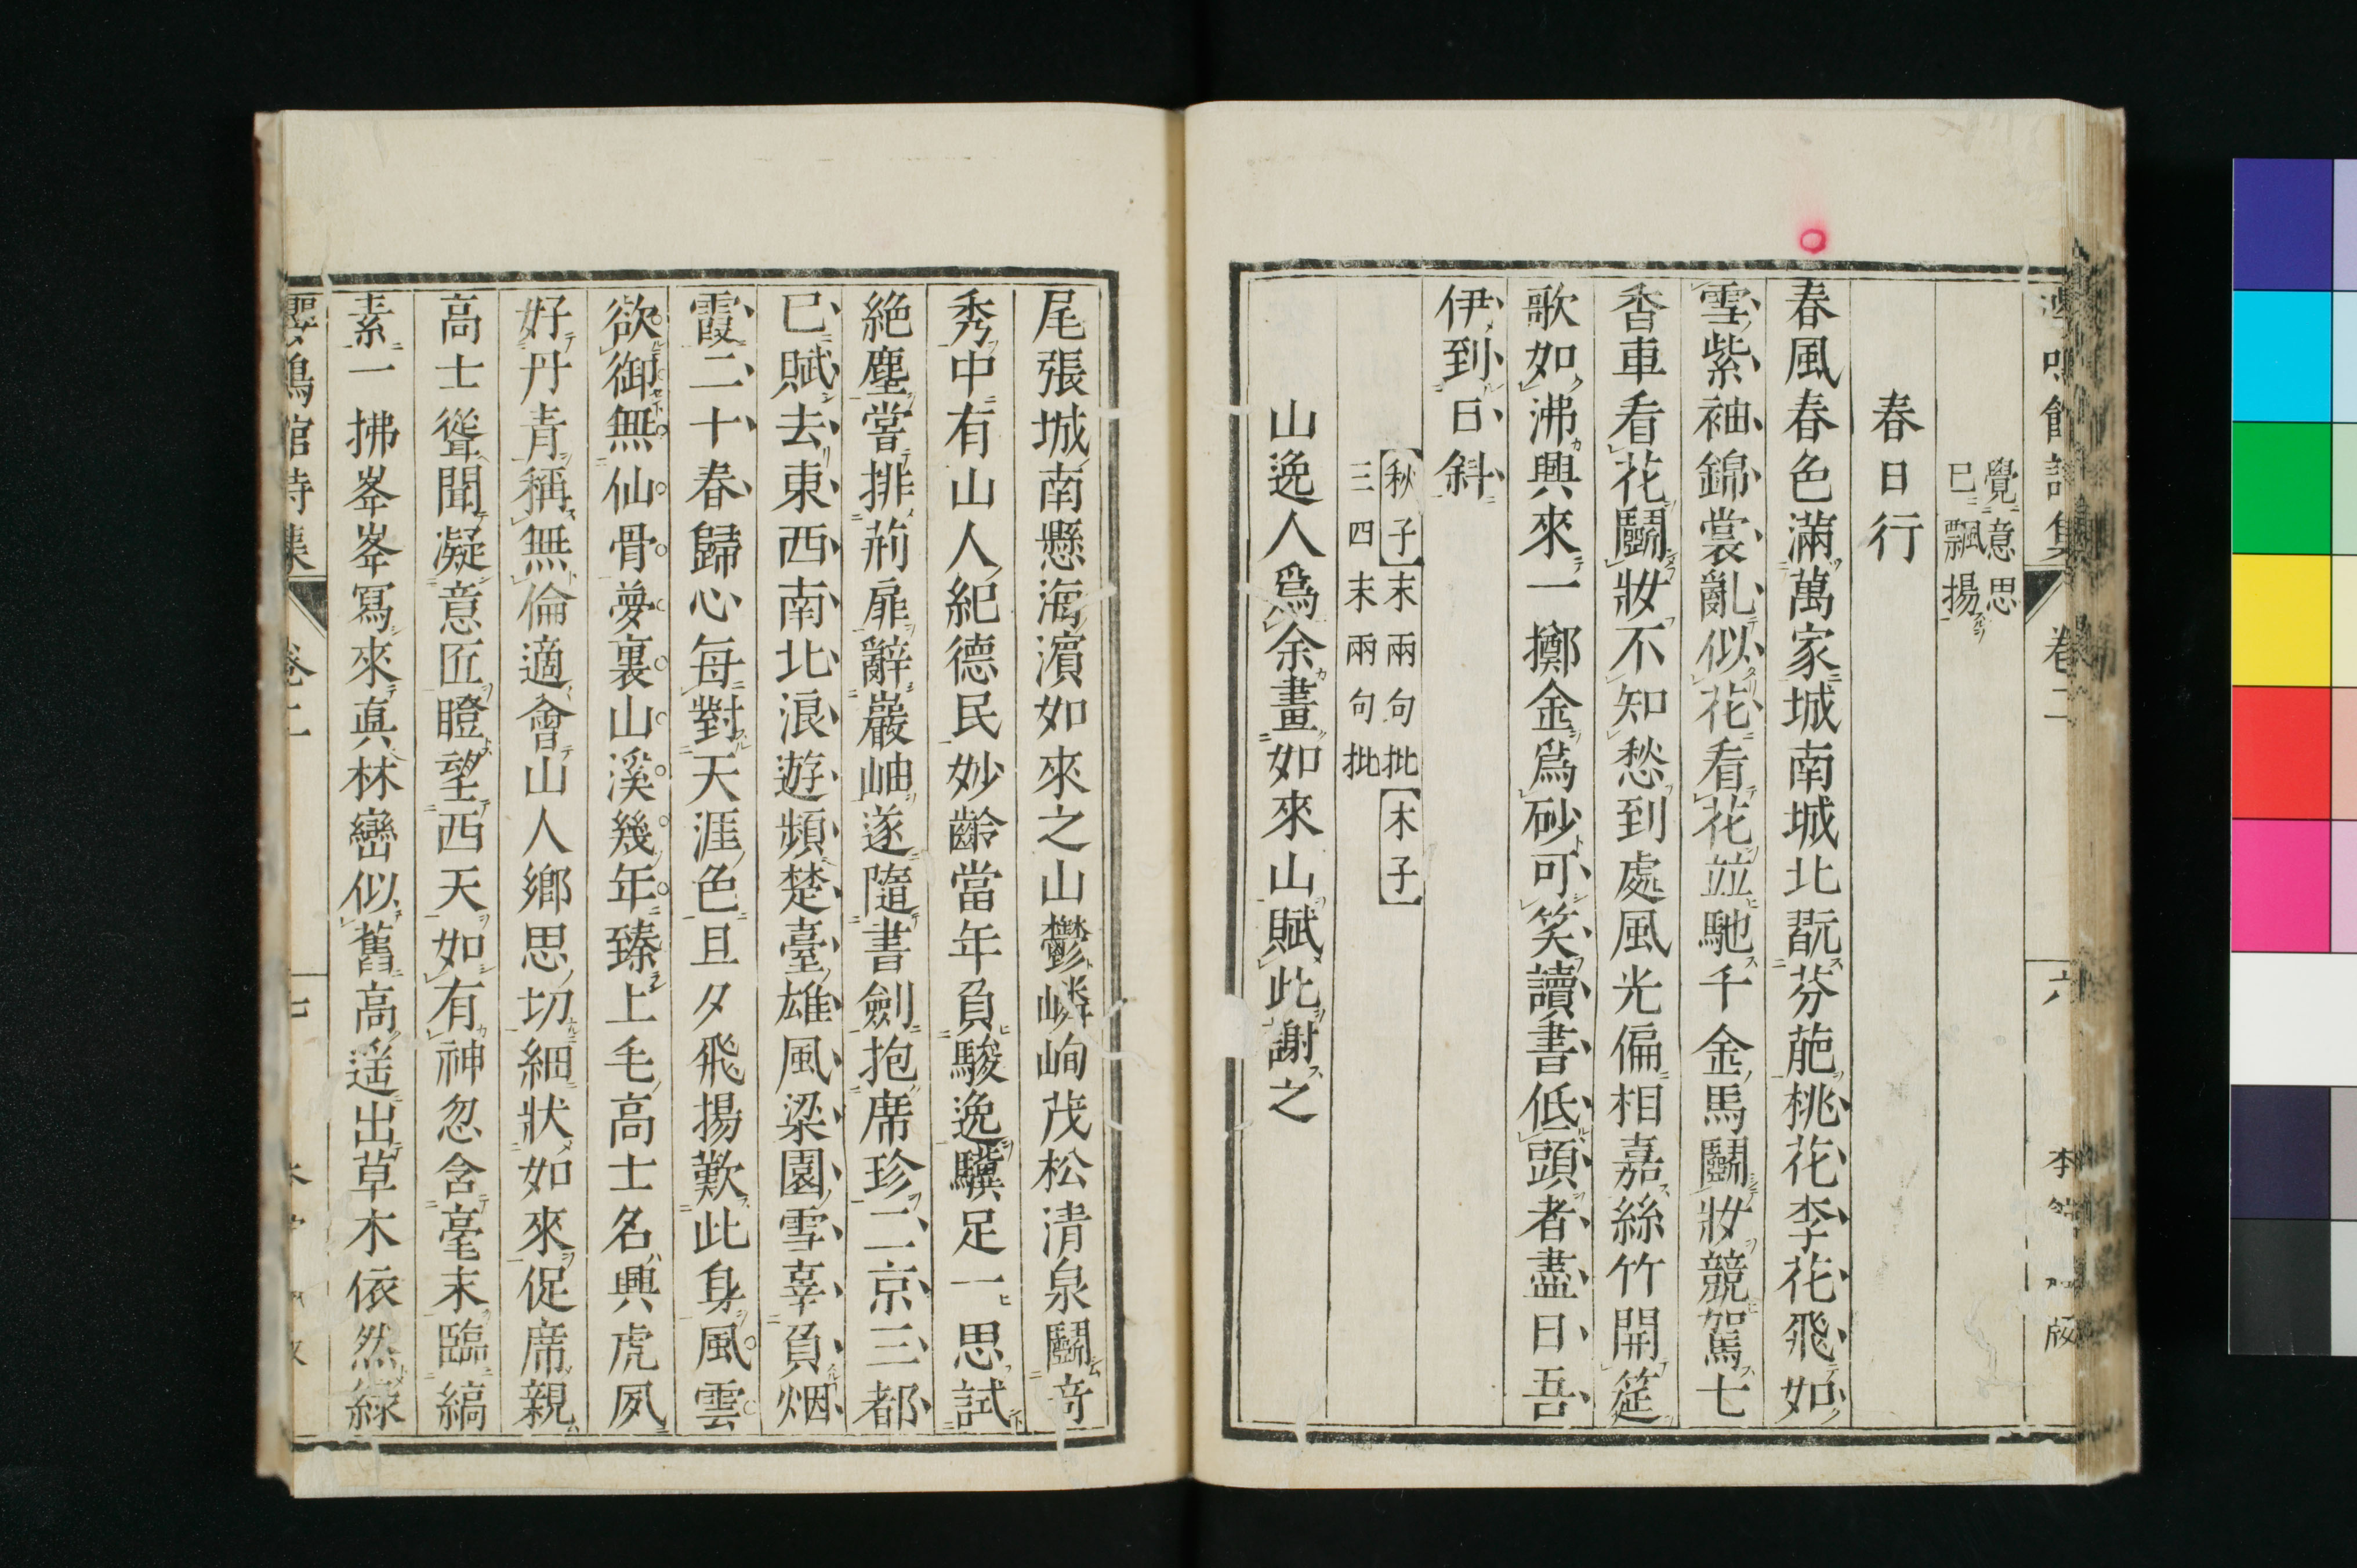 覺意思
已飄揚
春日行
春風春色滿萬家城南城北翫芬葩桃花李花飛如
雪紫袖錦裳亂似花看花並馳千金馬鬭妝競駕七
香車看花鬭妝不知愁到處風光偏相嘉絲竹開筵
歌如沸興來一擲金爲砂可笑讀書低頭者盡日吾
伊到日斜
【秋子】末兩句批【木子】
三四末兩句批
山逸人爲余畫如來山賦此謝之
尾張城南懸海濱如來之山鬱嶙峋茂松清泉鬭奇
秀中有山人紀德民妙齡當年負駿逸驥足一思試
絶塵嘗排荊扉辭巖岫遂隨書劍抱席珍二京三都
已賦去東西南北浪遊頻楚臺雄風梁園雪辜負烟
霞二十春歸心每對天涯色旦夕飛揚歎此身風雲
欲御無仙骨夢裏山溪幾年臻上毛高士名興虎夙
好丹青稱無倫適會山人鄉思切細狀如來促席親
高士聳聞凝意匠瞪望西天如有神忽含毫末臨縞
素一拂峯峯寫來真林巒似舊高遥出草木依然綠
嚶鳴館詩集 卷二